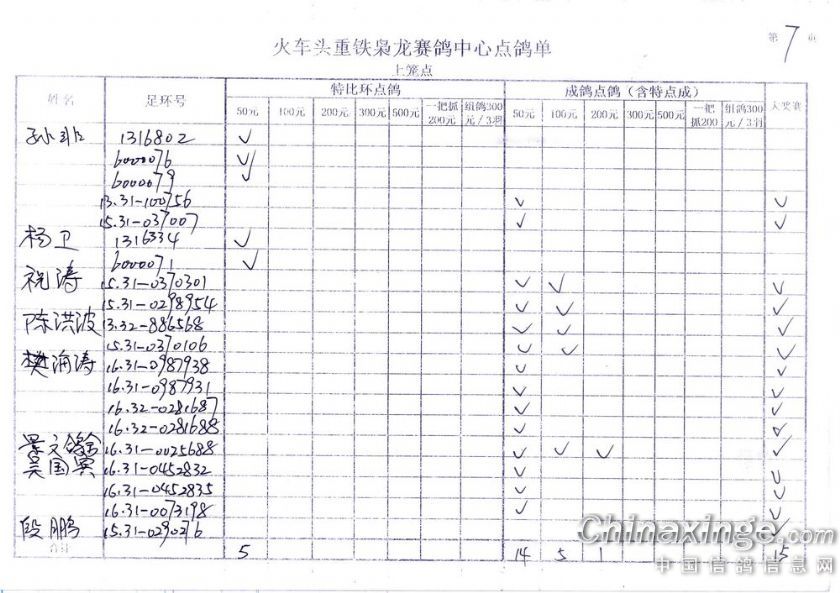 第7页
火车头重铁枭龙赛鸽中心点鸽单
上笼点
姓名 足环号 特比环点鸽 成鸽点鸽（含特点成） 大奖赛
50元 100元 200元 300元 500元 一把抓200元 组鸽300元／3羽 50元 100元 200元 300元 500元 一把抓200 组鸽300元／3羽
孙非 1316802 ✓
6000076 ✓
6000079 ✓
13.31-100756 ✓ ✓
15.31-037007 ✓ ✓
杨卫 1316334 ✓
6000071 ✓
祝涛 15.31-0370301 ✓ ✓ ✓
15.31-0298954 ✓ ✓ ✓
陈洪波 13.32-886568 ✓ ✓ ✓
15.31-0370106 ✓ ✓ ✓
樊海涛 16.31-0987938 ✓ ✓
16.31-0987931 ✓ ✓
16.32-0281687 ✓ ✓
16.32-0281688 ✓ ✓
景文鸽舍 16.31-0025688 ✓ ✓ ✓ ✓
吴国宾 16.31-0452832 ✓ ✓
16.31-0452835 ✓ ✓
16.31-0073198 ✓ ✓
段鹏 15.31-029076 ✓
合计 5 14 5 1 15
Chinaxinge.com
中国信鸽信息网